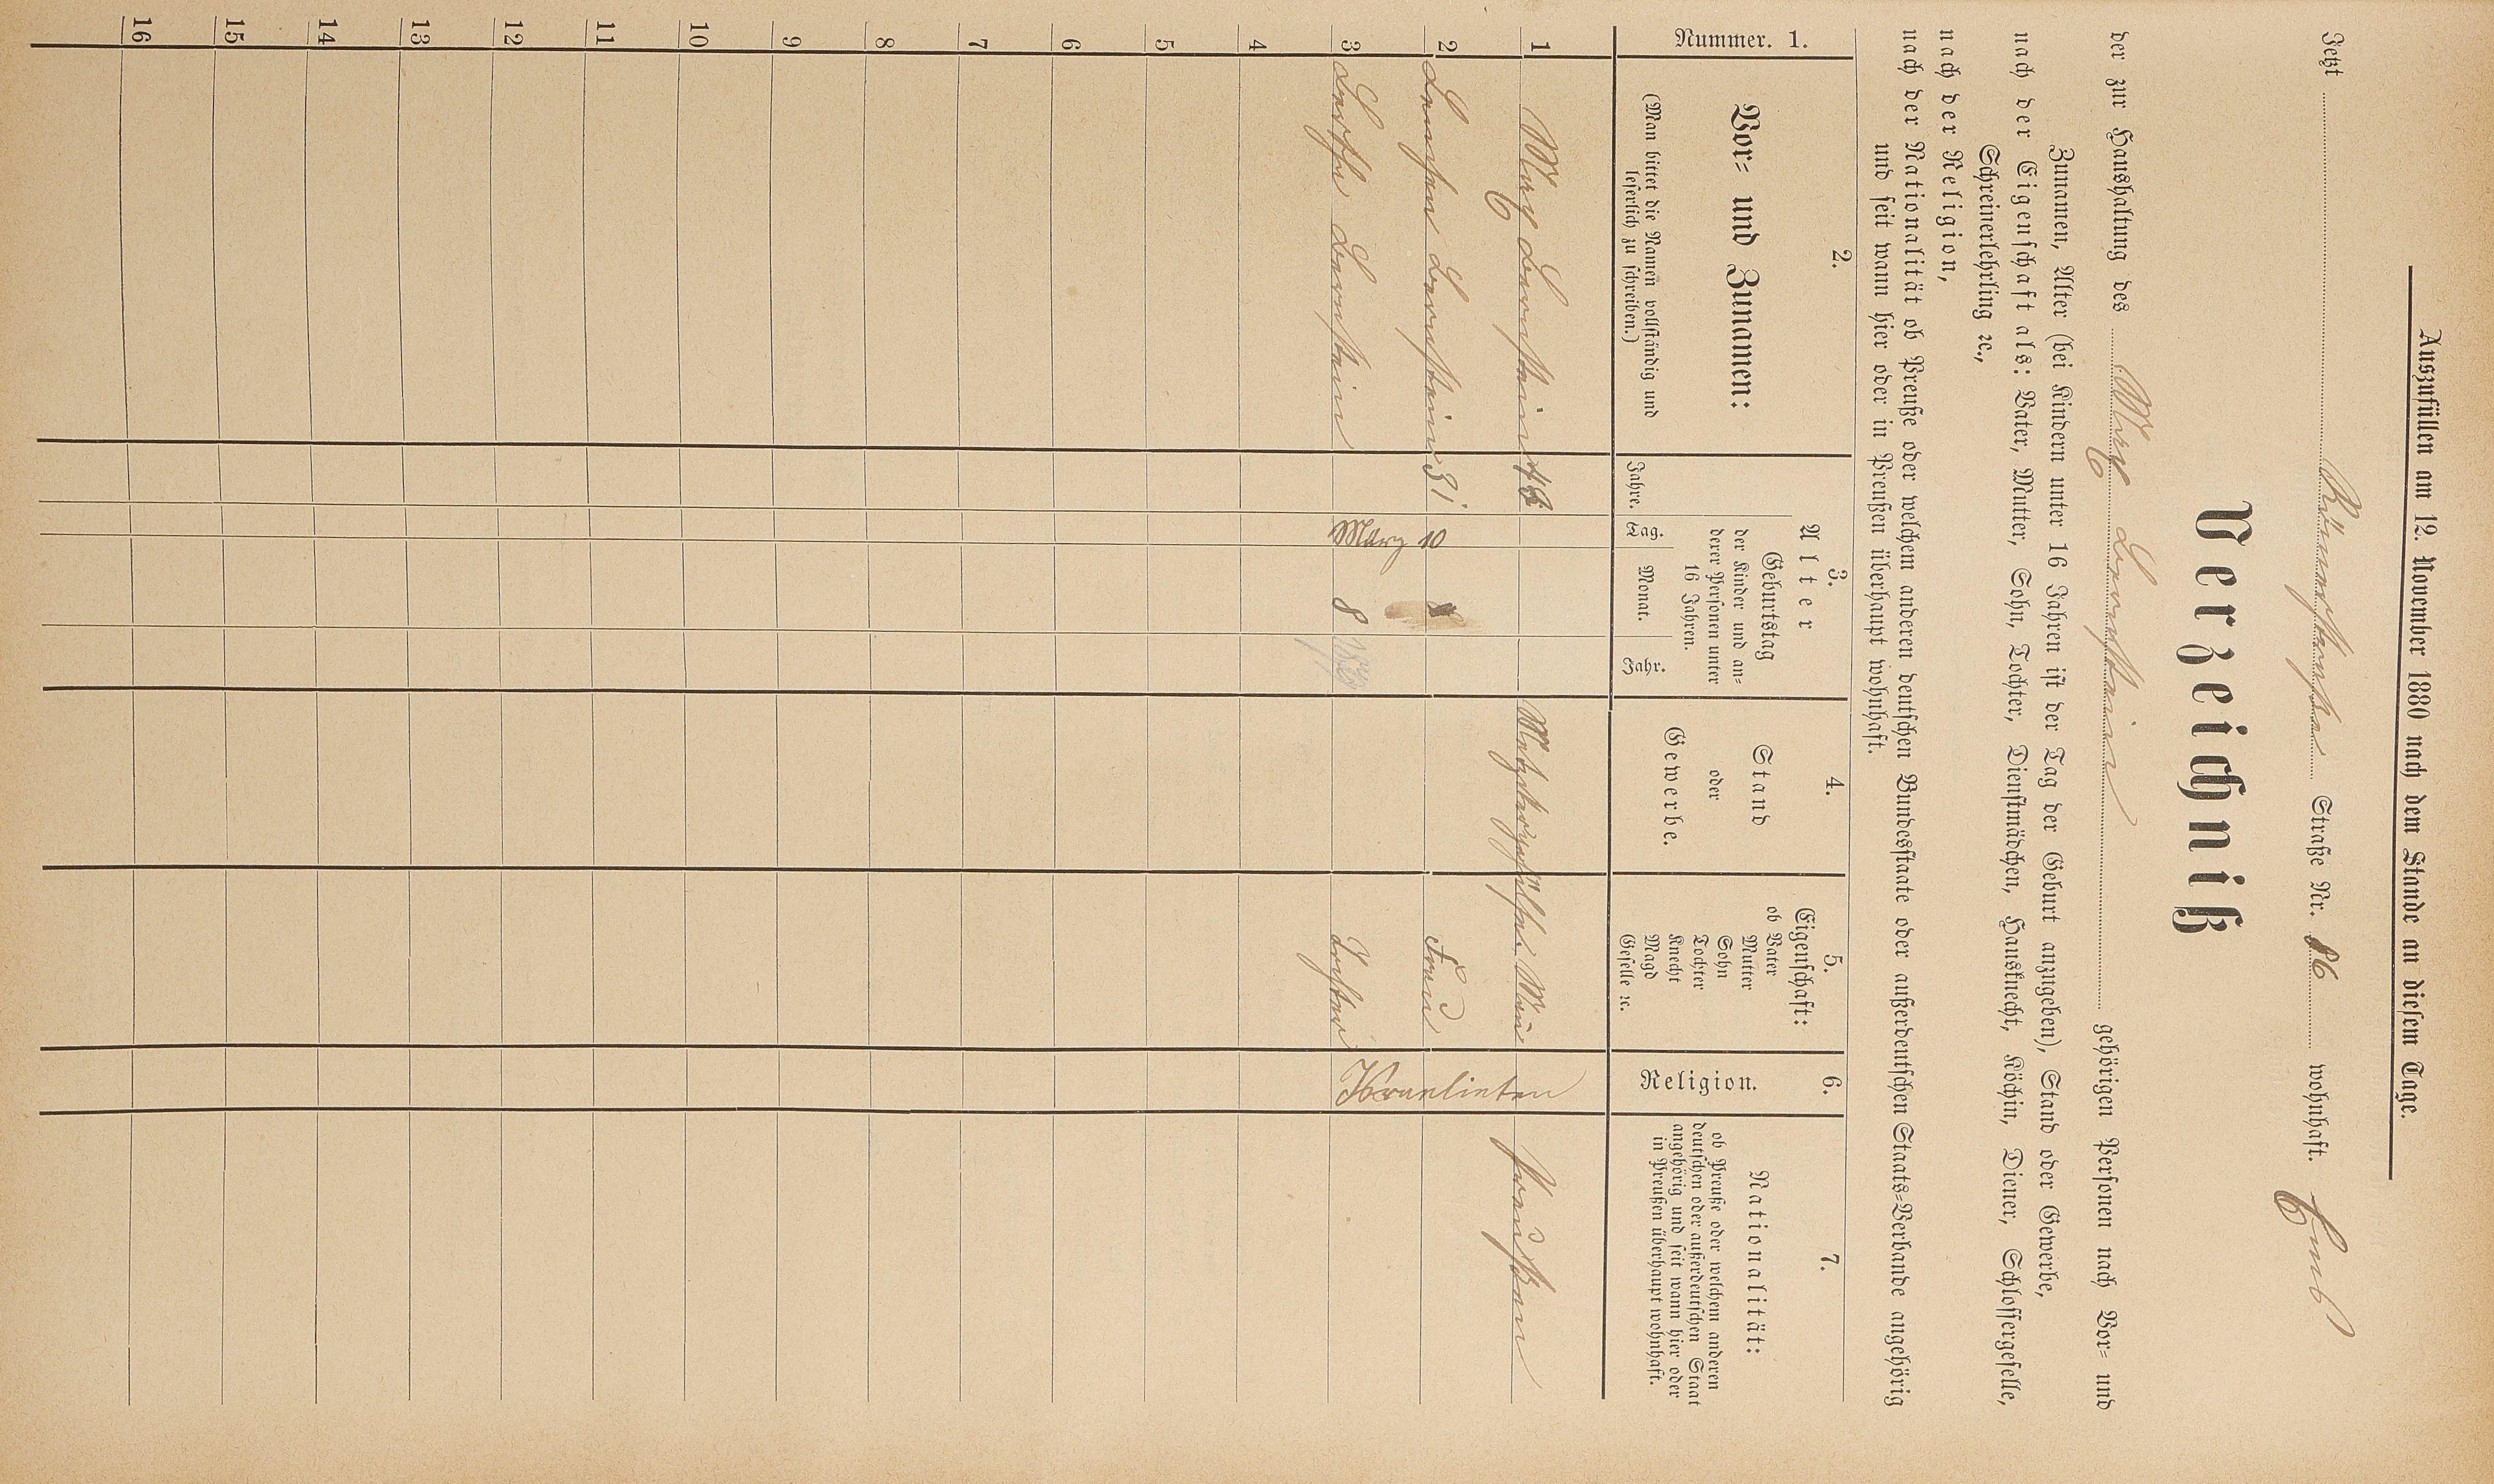 Auszufüllen am 12. November 1880 nach dem Stande an diesem Tage.
Jetzt Straße Nr. 86 wohnhaft.
Verzeichniß
der zur Haushaltung des gehörigen Personen nach Vor= und
Zunamen, Alter (bei Kindern unter 16 Jahren ist der Tag der Geburt anzugeben), Stand oder Gewerbe,
nach der Eigenschaft als: Vater, Mutter, Sohn, Tochter, Dienstmädchen, Hausknecht, Köchin, Diener, Schlossergeselle,
Schreinerlehrling ꝛc.,
nach der Religion,
nach der Nationalität ob Preuße oder welchem anderen deutschen Bundesstaate oder außerdeutschen Staats=Verbande angehörig
und seit wann hier oder in Preußen überhaupt wohnhaft.
Nummer. 1.
2.
Vor= und Zunamen:
(Man bittet die Namen vollständig und
leserlich zu schreiben.)
3.
Alter
Geburtstag
der Kinder und an=
derer Personen unter
16 Jahren.
Jahre.
Tag.
Monat.
Jahr.
4.
Stand
oder
Gewerbe.
5.
Eigenschaft:
ob Vater
Mutter
Sohn
Tochter
Knecht
Magd
Geselle ꝛc.
6.
Religion.
7.
Nationalität:
ob Preuße oder welchem anderen
deutschen oder außerdeutschen Staat
angehörig und seit wann hier oder
in Preußen überhaupt wohnhaft.
1 Preußen
2 31 Frau
3 März 8 Tochter Israeliten
4
5
6
7
8
9
10
11
12
13
14
15
16